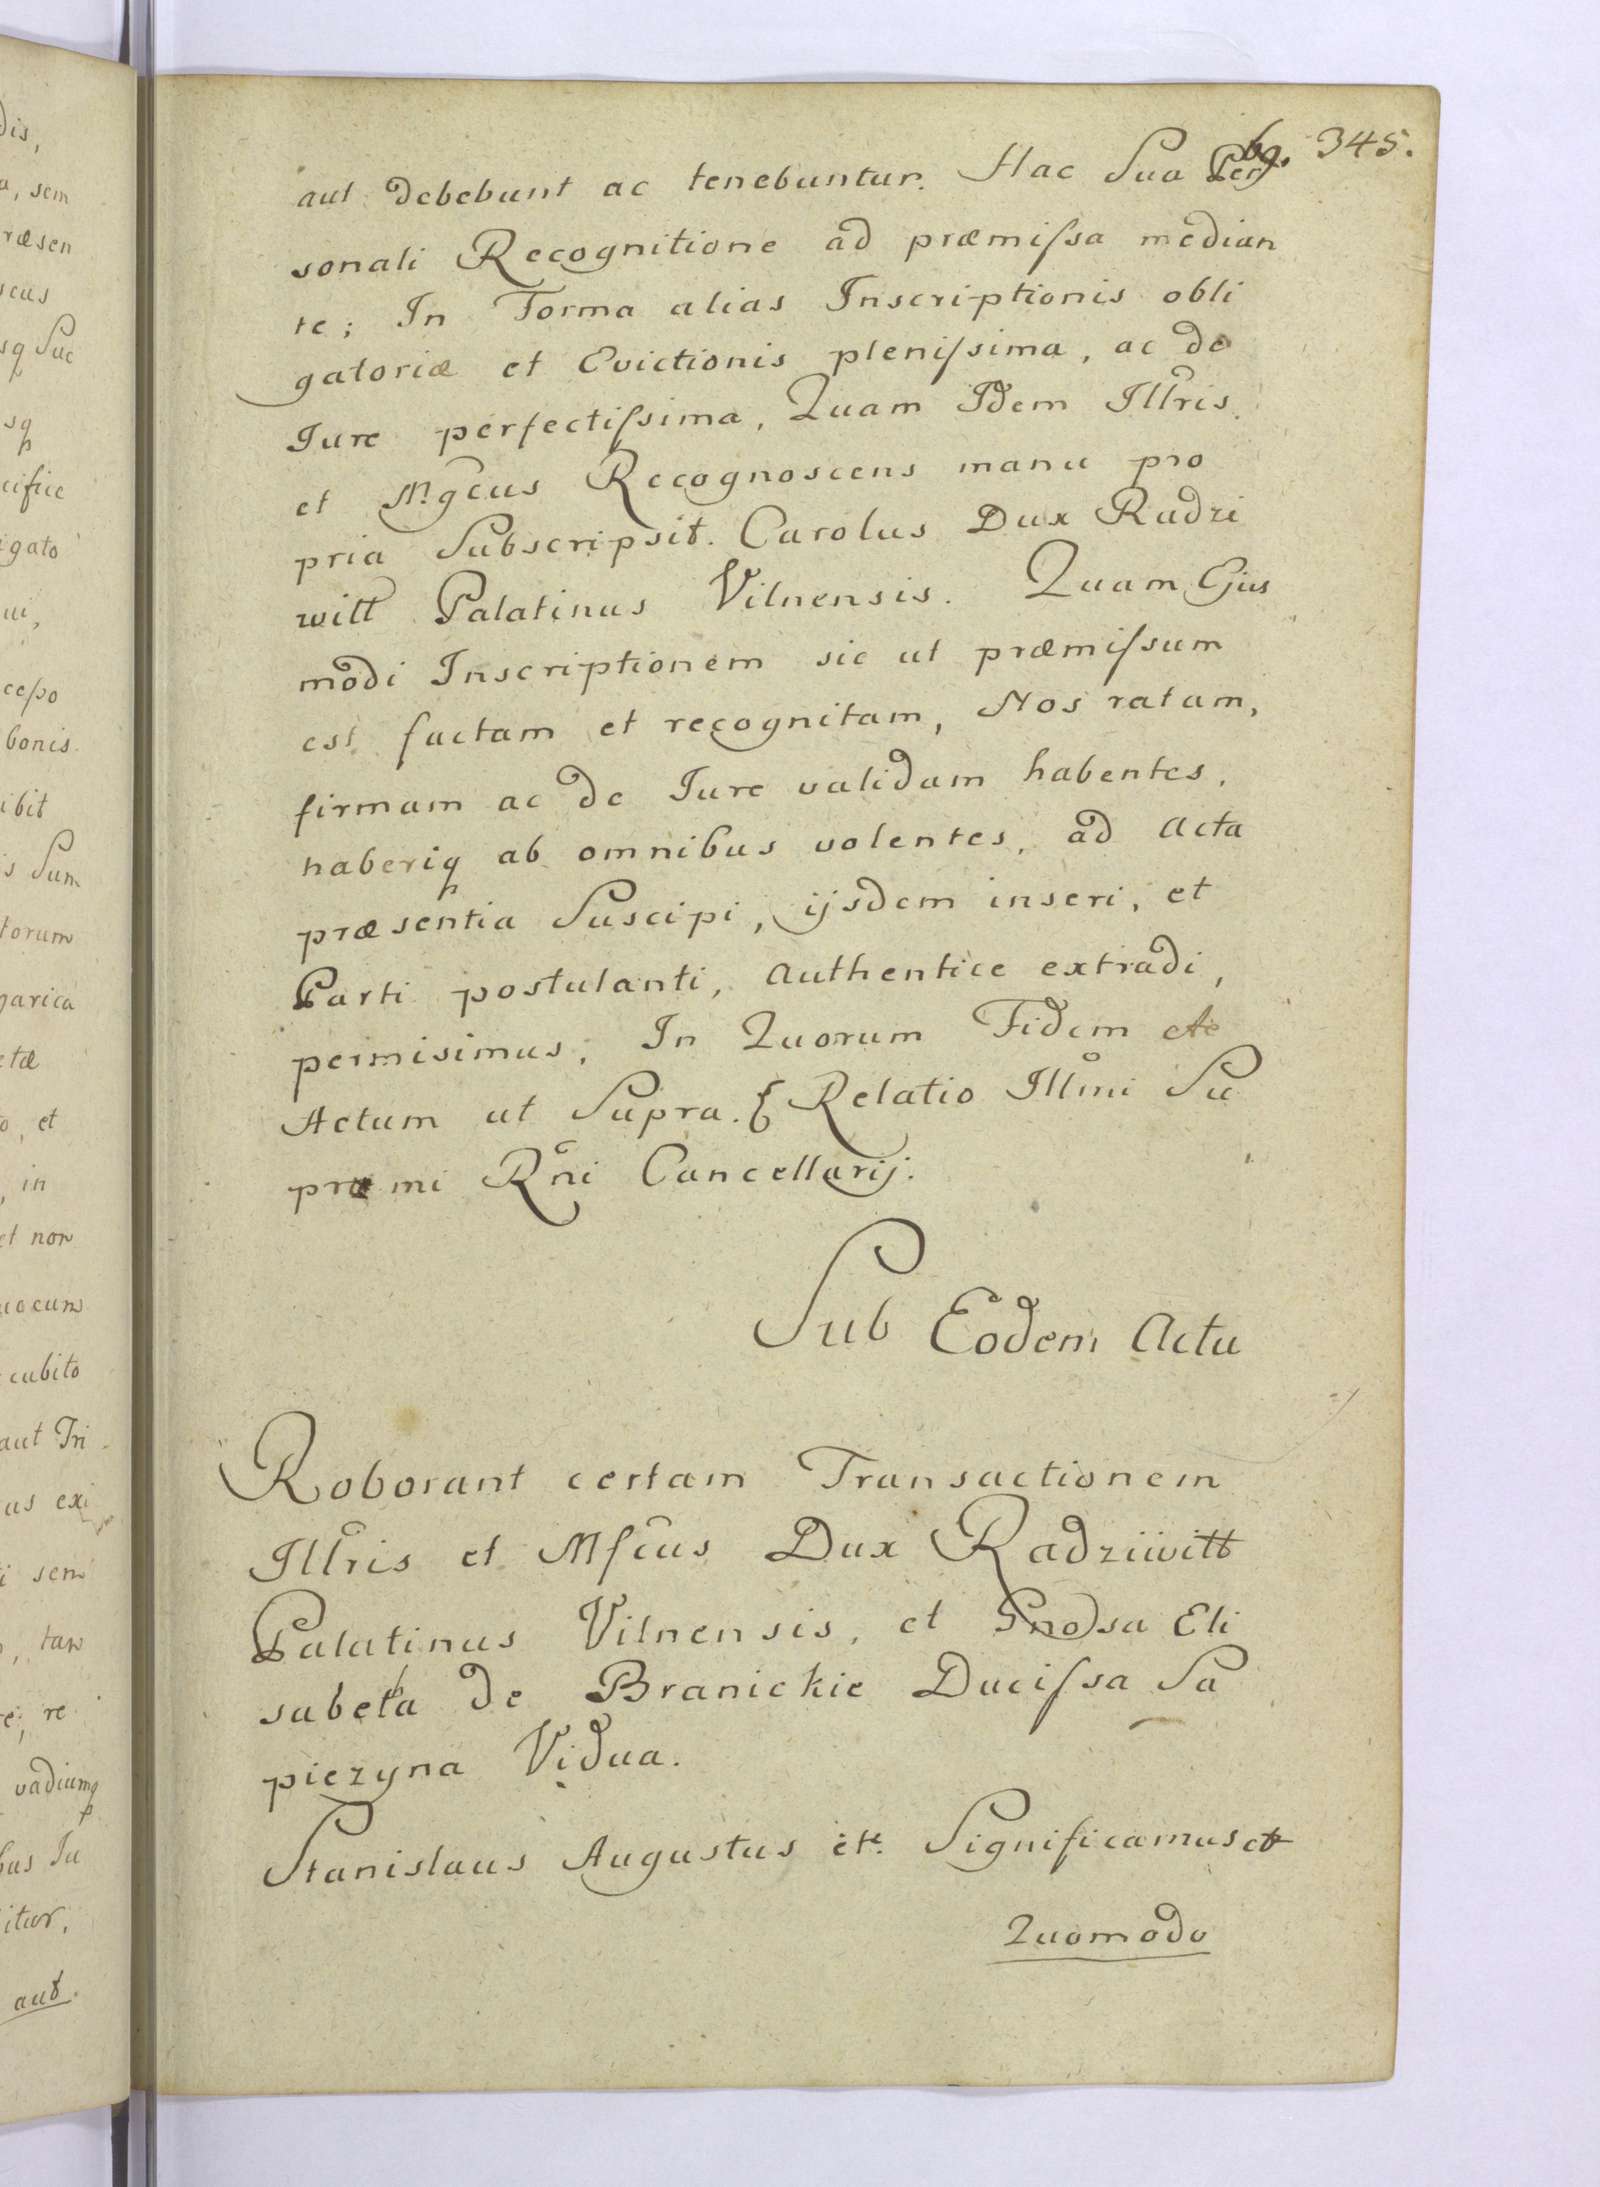 69. 345.
aut debebunt ac tenebuntur. Hac Sua Per
sonali Recognitione ad præmiſsa median
te; In Forma alias Inscriptionis obli
gatoriæ et Evictionis pleniſsima, ac de
Jure perfectiſsima, Quam Idem Illris
et Mgcus Recognoscens manu pro
pria Subscripsit. Carolus Dux Radzi
wiłł Palatinus Vilnensis. Quam Ejus
modi Inscriptionem sic ut præmiſsum
est factam et recognitam, Nos ratam,
firmam ac de Jure validam habentes,
haberiq ab omnibus volentes, ad Acta
præsentia Suscipi, ijsdem inseri, et
Parti postulanti, authentice extradi,
permisimus, In Quorum Fidem etc
Actum ut Supra. Relatio Illmi Su
præmi Rni Cancellarij.
Sub Eodem Actu
Roborant certam Transactionem
Illris et Mfcus Dux Radziwiłł
Palatinus Vilnensis, et Gnosa Eli
sabetha de Branickie Duciſsa Sa
piezyna Vidua.
Stanislaus Augustus etc. Significamus etc
Quomodo
dis,
a, sem
ræsen
scus
sq Suc
sq
cifice
igato
ui,
ceſso
bonis
ibit
s Sum
torum
garica
etæ
o, et
, in
et non
uocum
cubito
aut Tri
as exi
i sem
, tam
e, re
vadiumq
bus Ju
itur,
aut.